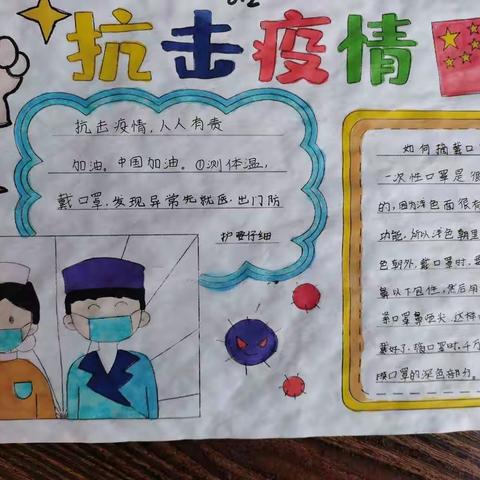 6.2
抗击疫情
抗击疫情,人人有责
加油。中国加油。①测体温,
戴口罩,发现异常先就医,出门防
护要仔细
如何摘戴口
一次性口罩是很
的,因为浅色面很有
功能,所以浅色朝里
色朝外,戴口罩时,
鼻以下包住,然后用
紧口罩鼻
戴好了,摘口罩时,千万
摸口罩的深色部分。